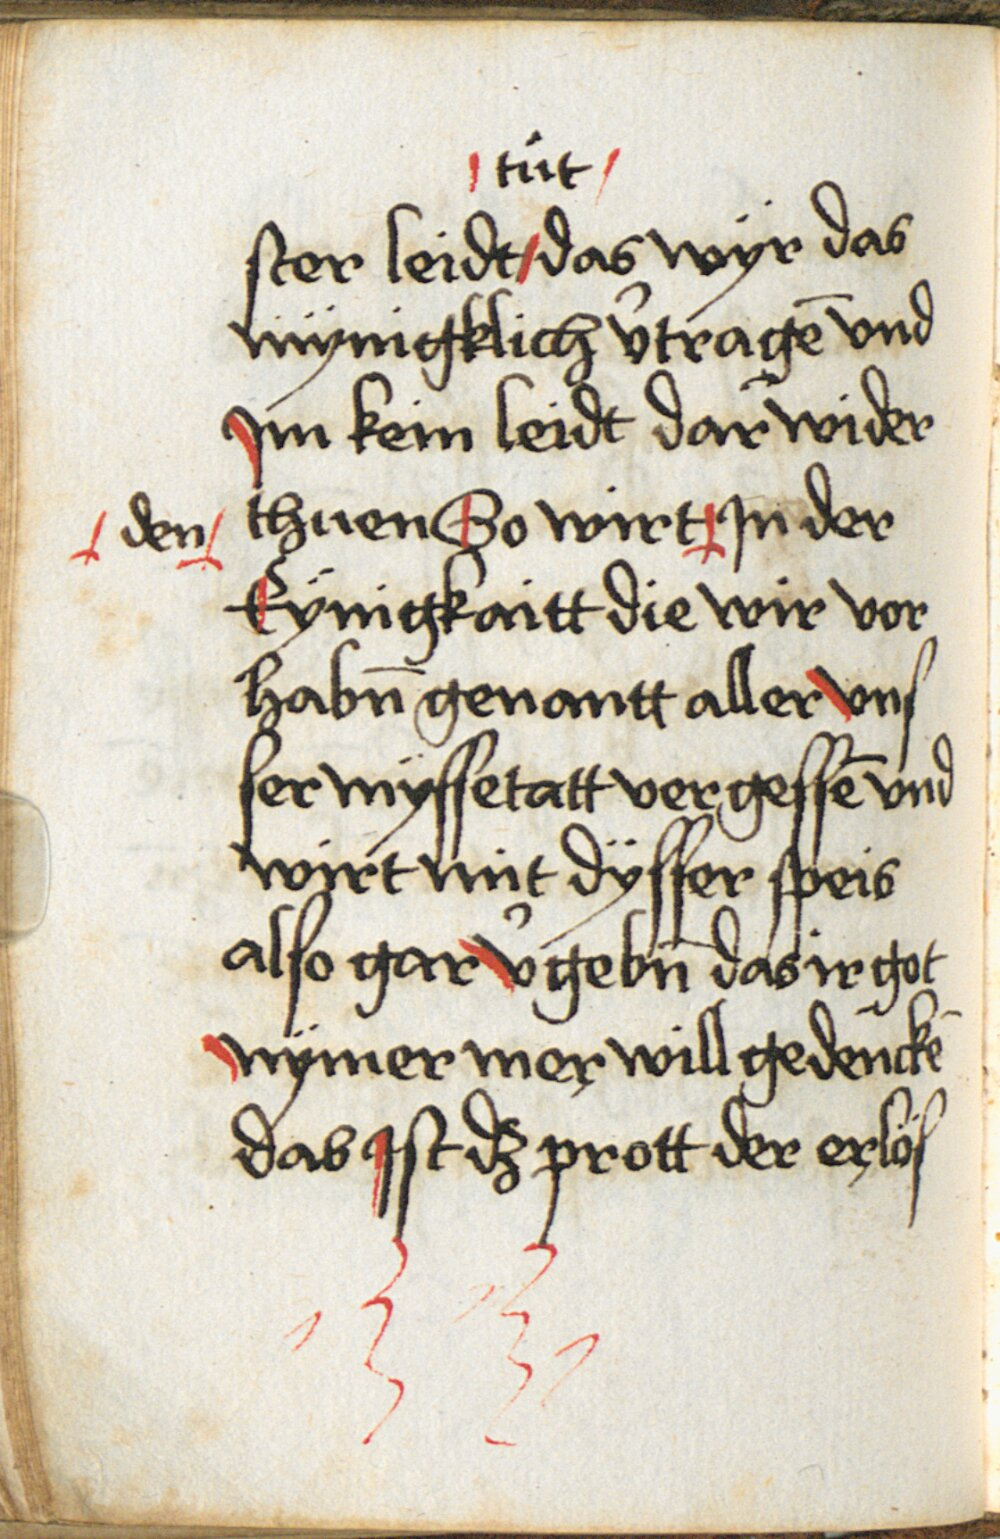 tůt
ster leidt / das wÿr das
mÿnigklich v̓tragē vnd
Im kein leidt dar wider
den thuen So wirt In der
Eÿnigkaitt die wir vor
habn̄ genantt aller vns
ser mÿssetatt vergessē vnd
wirt mit dÿsser speis
also gar v̓gebn̄ das ir got
nÿmer mer will gedenckē
das Ist dz prott der erlös